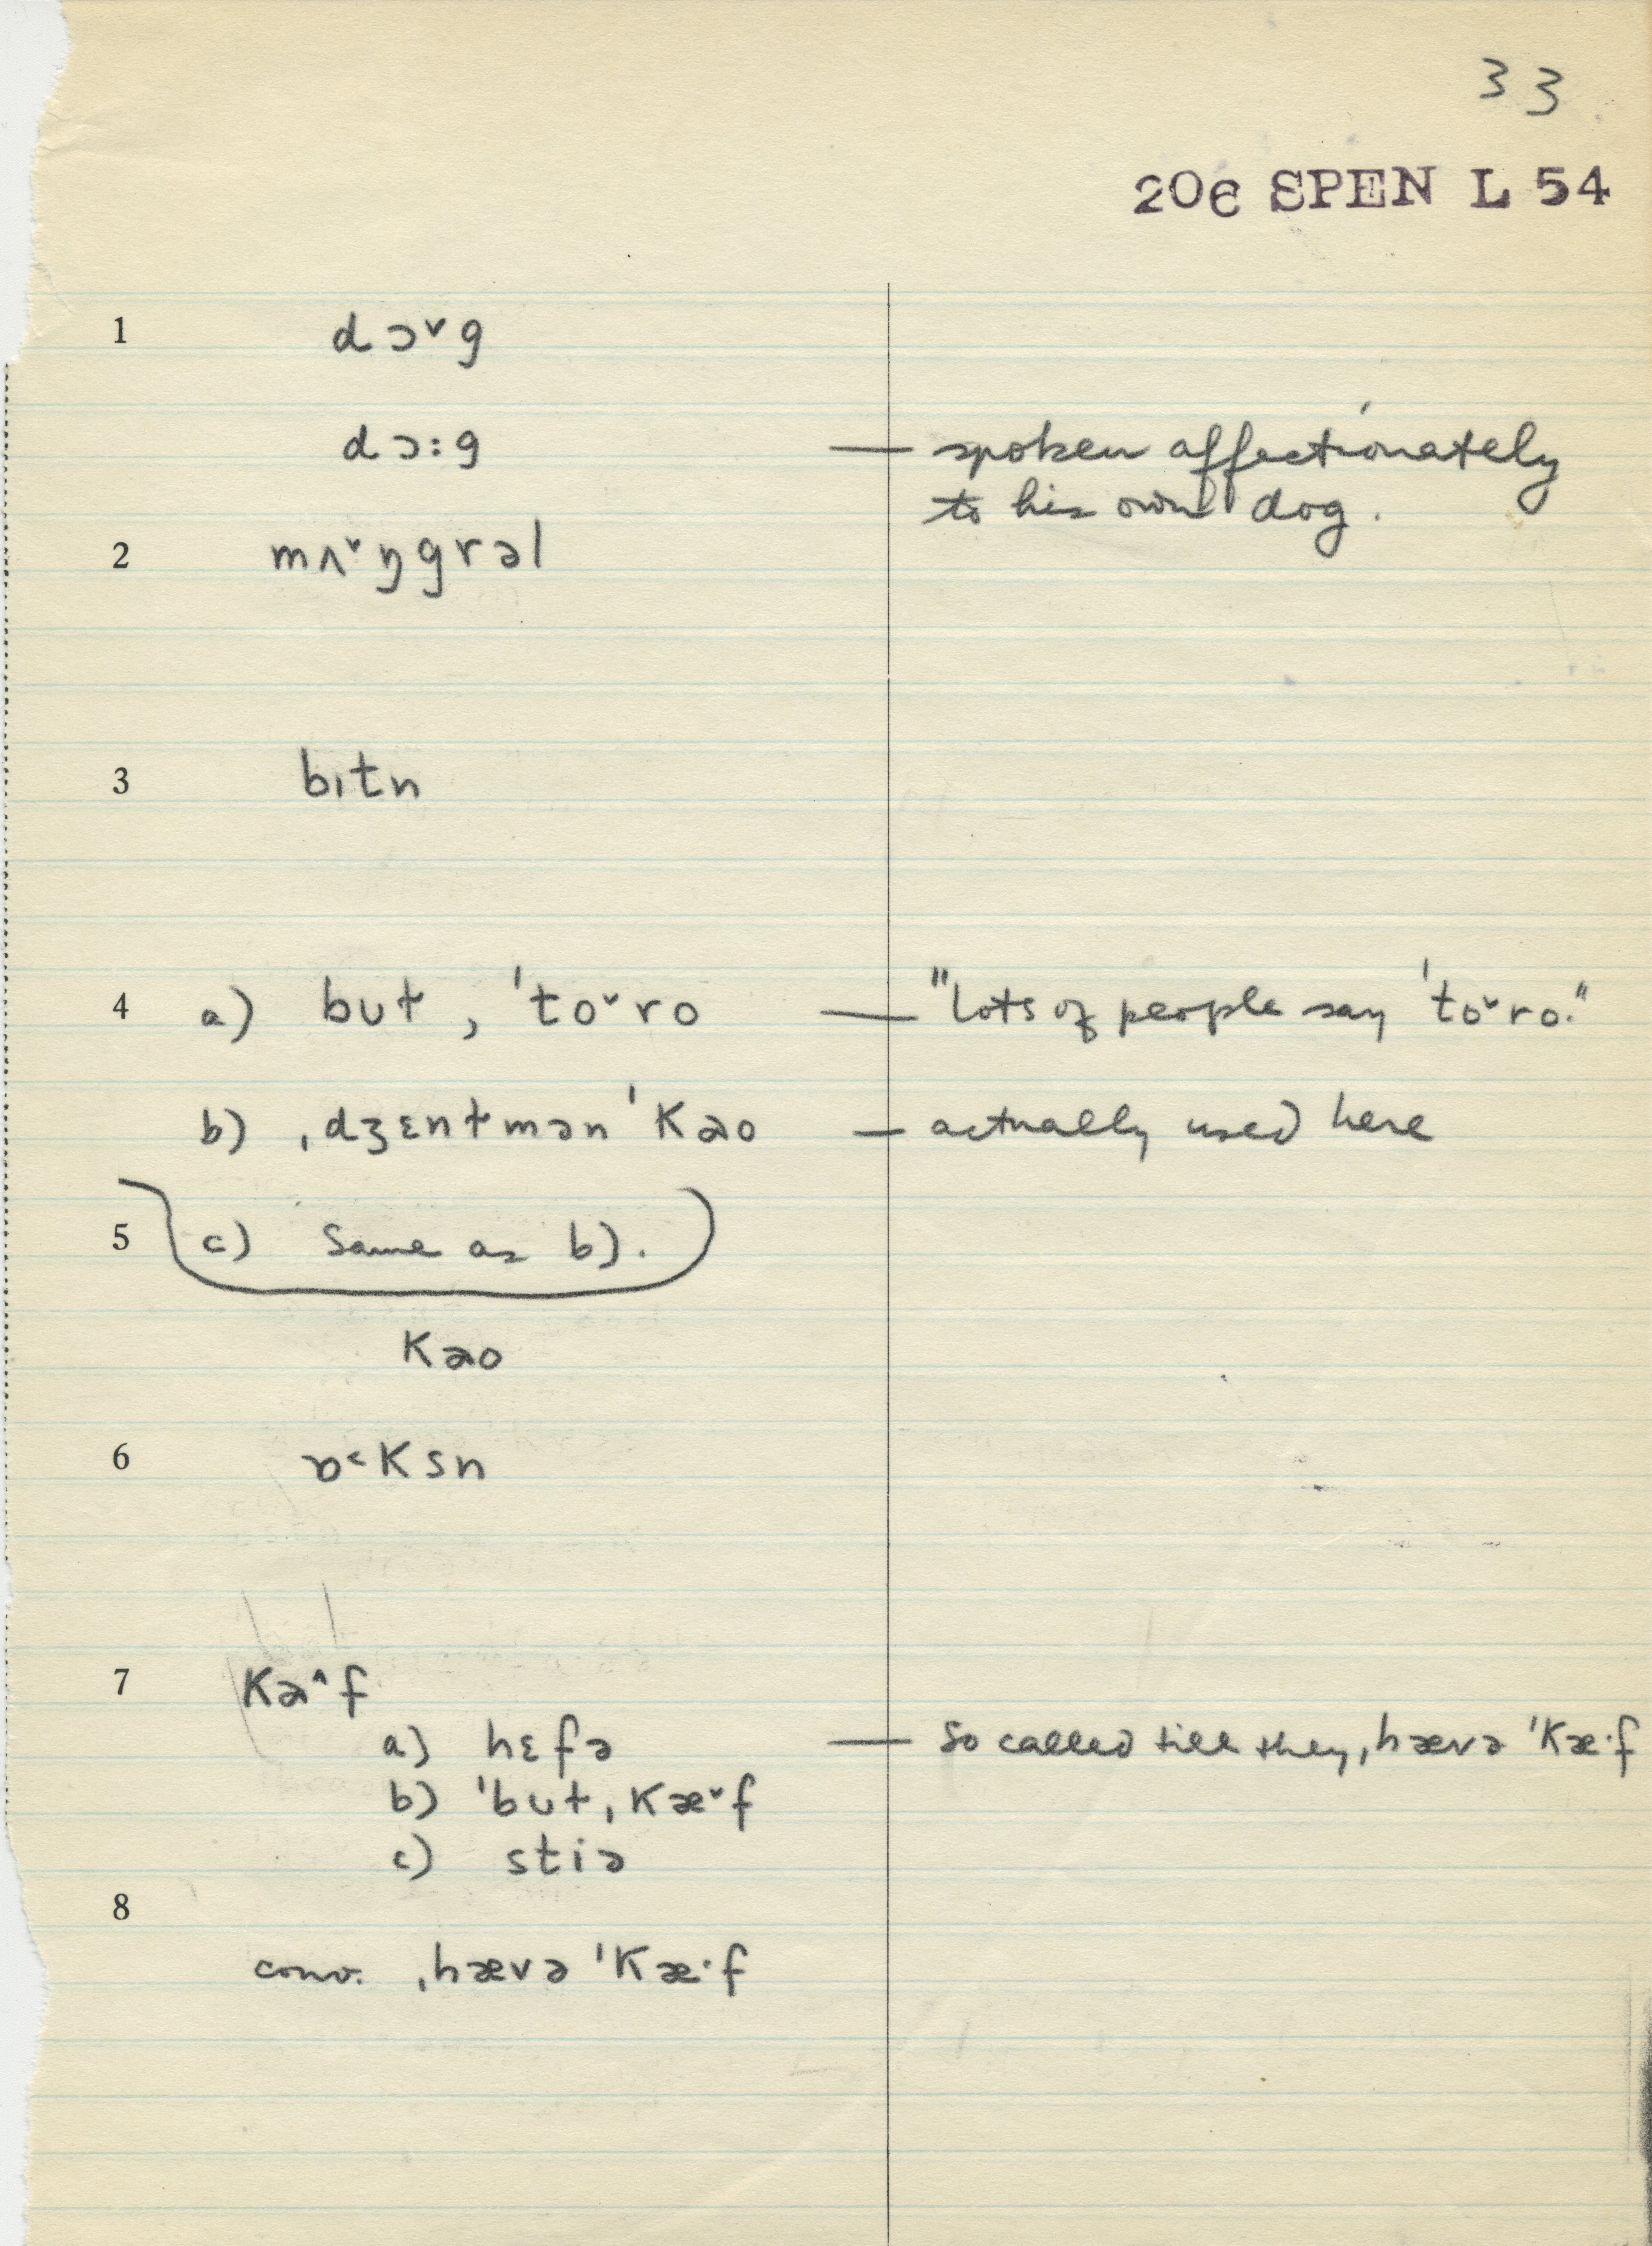 33
206 SPEN L 54
1 dɔ˅g
dɔ:g — spoken affectionately
to his own dog.
2 mʌ˅ŋgrəl
3 bɪtn
4 a) bʊt, ˈto˅ro — "lots of people say ˈto˅ro."
b) ˌdʒɛntmən ˈkao — actually used here
5 c) Same as b).
kao
6 ɒ˂ksn
7 ka^f
a) hɛfə — so called till they ˌhævə ˈkæ·f
b) ˈbʊt ˌkæ˅f
c) stiə
8
conv. ˌhævə ˈkæ·f